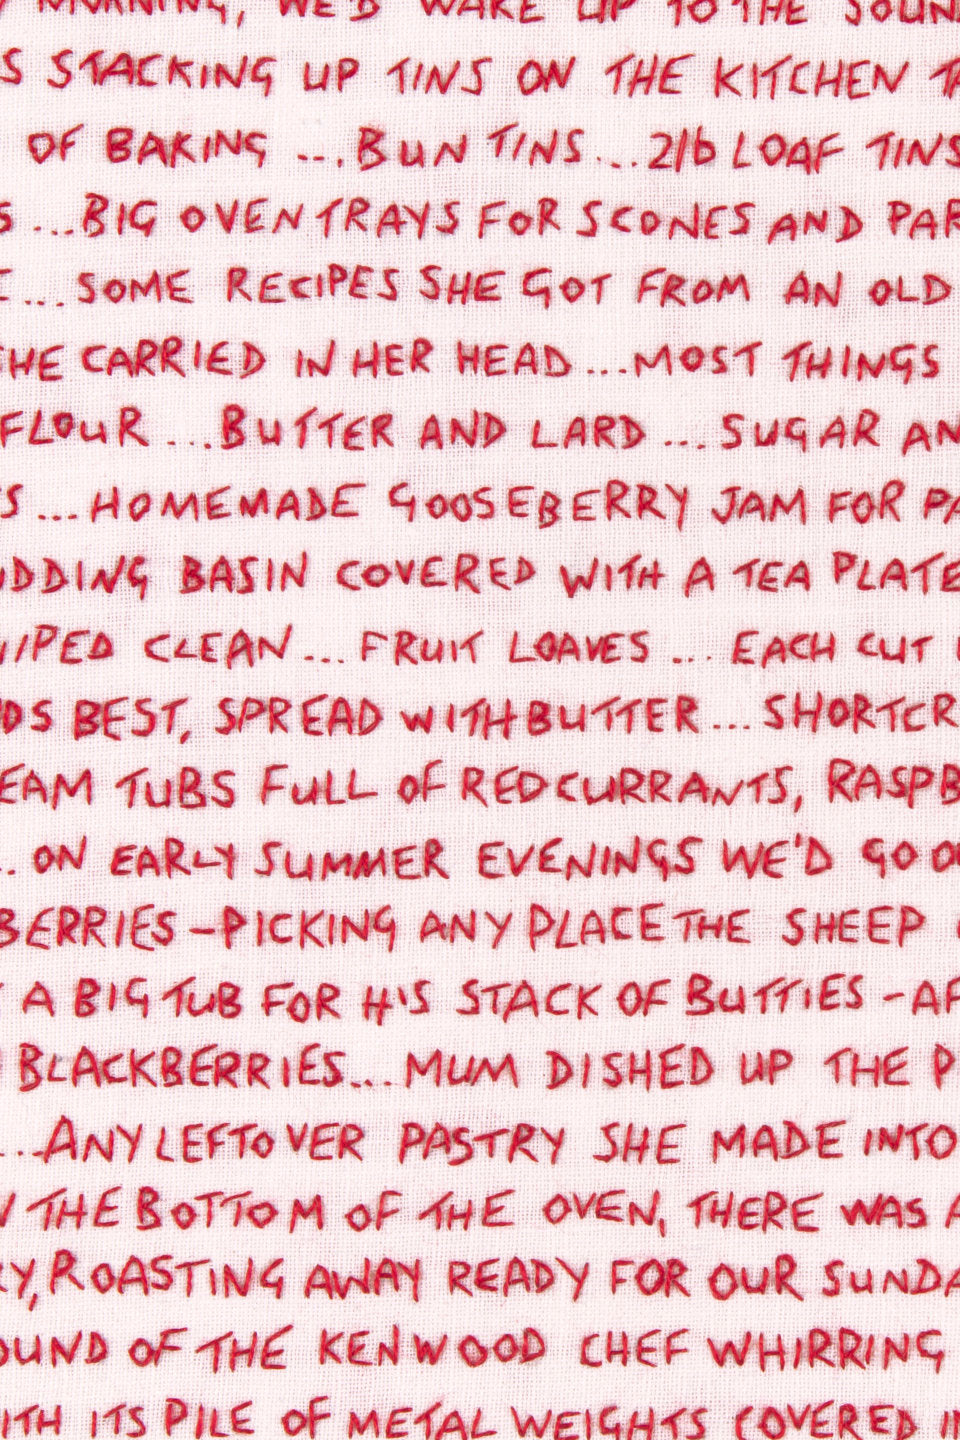 MORNING, WE'D WAKE UP TO THE SOUN
S STACKING UP TINS ON THE KITCHEN TA
OF BAKING ... BUN TINS ... 2lb LOAF TINS
S ... BIG OVEN TRAYS FOR SCONES AND PAR
... SOME RECIPES SHE GOT FROM AN OLD
HE CARRIED IN HER HEAD ... MOST THINGS
FLOUR ... BUTTER AND LARD ... SUGAR AN
S ... HOMEMADE GOOSEBERRY JAM FOR PA
UDDING BASIN COVERED WITH A TEA PLATE
WIPED CLEAN ... FRUIT LOAVES ... EACH CUT
DS BEST, SPREAD WITH BUTTER ... SHORTCR
EAM TUBS FULL OF REDCURRANTS, RASPB
.. ON EARLY SUMMER EVENINGS WE'D GO OU
BERRIES - PICKING ANY PLACE THE SHEEP
A BIG TUB FOR HIS STACK OF BUTTIES - AF
BLACKBERRIES ... MUM DISHED UP THE P
... ANY LEFTOVER PASTRY SHE MADE INTO
THE BOTTOM OF THE OVEN, THERE WAS A
RY, ROASTING AWAY READY FOR OUR SUNDA
OUND OF THE KENWOOD CHEF WHIRRING
ITH ITS PILE OF METAL WEIGHTS COVERED IN